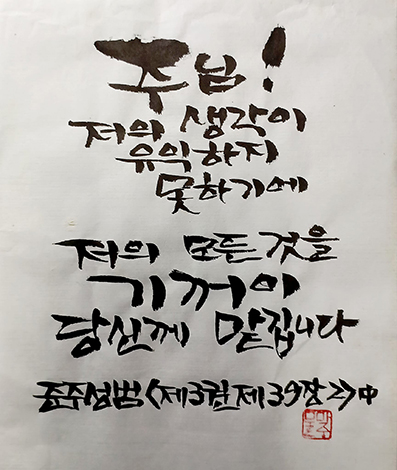 주님!
저의 생각이
유익하지
못하기에
저의 모든것을
기꺼이
당신께 맡깁니다
준주성범<제3권제39장2>中